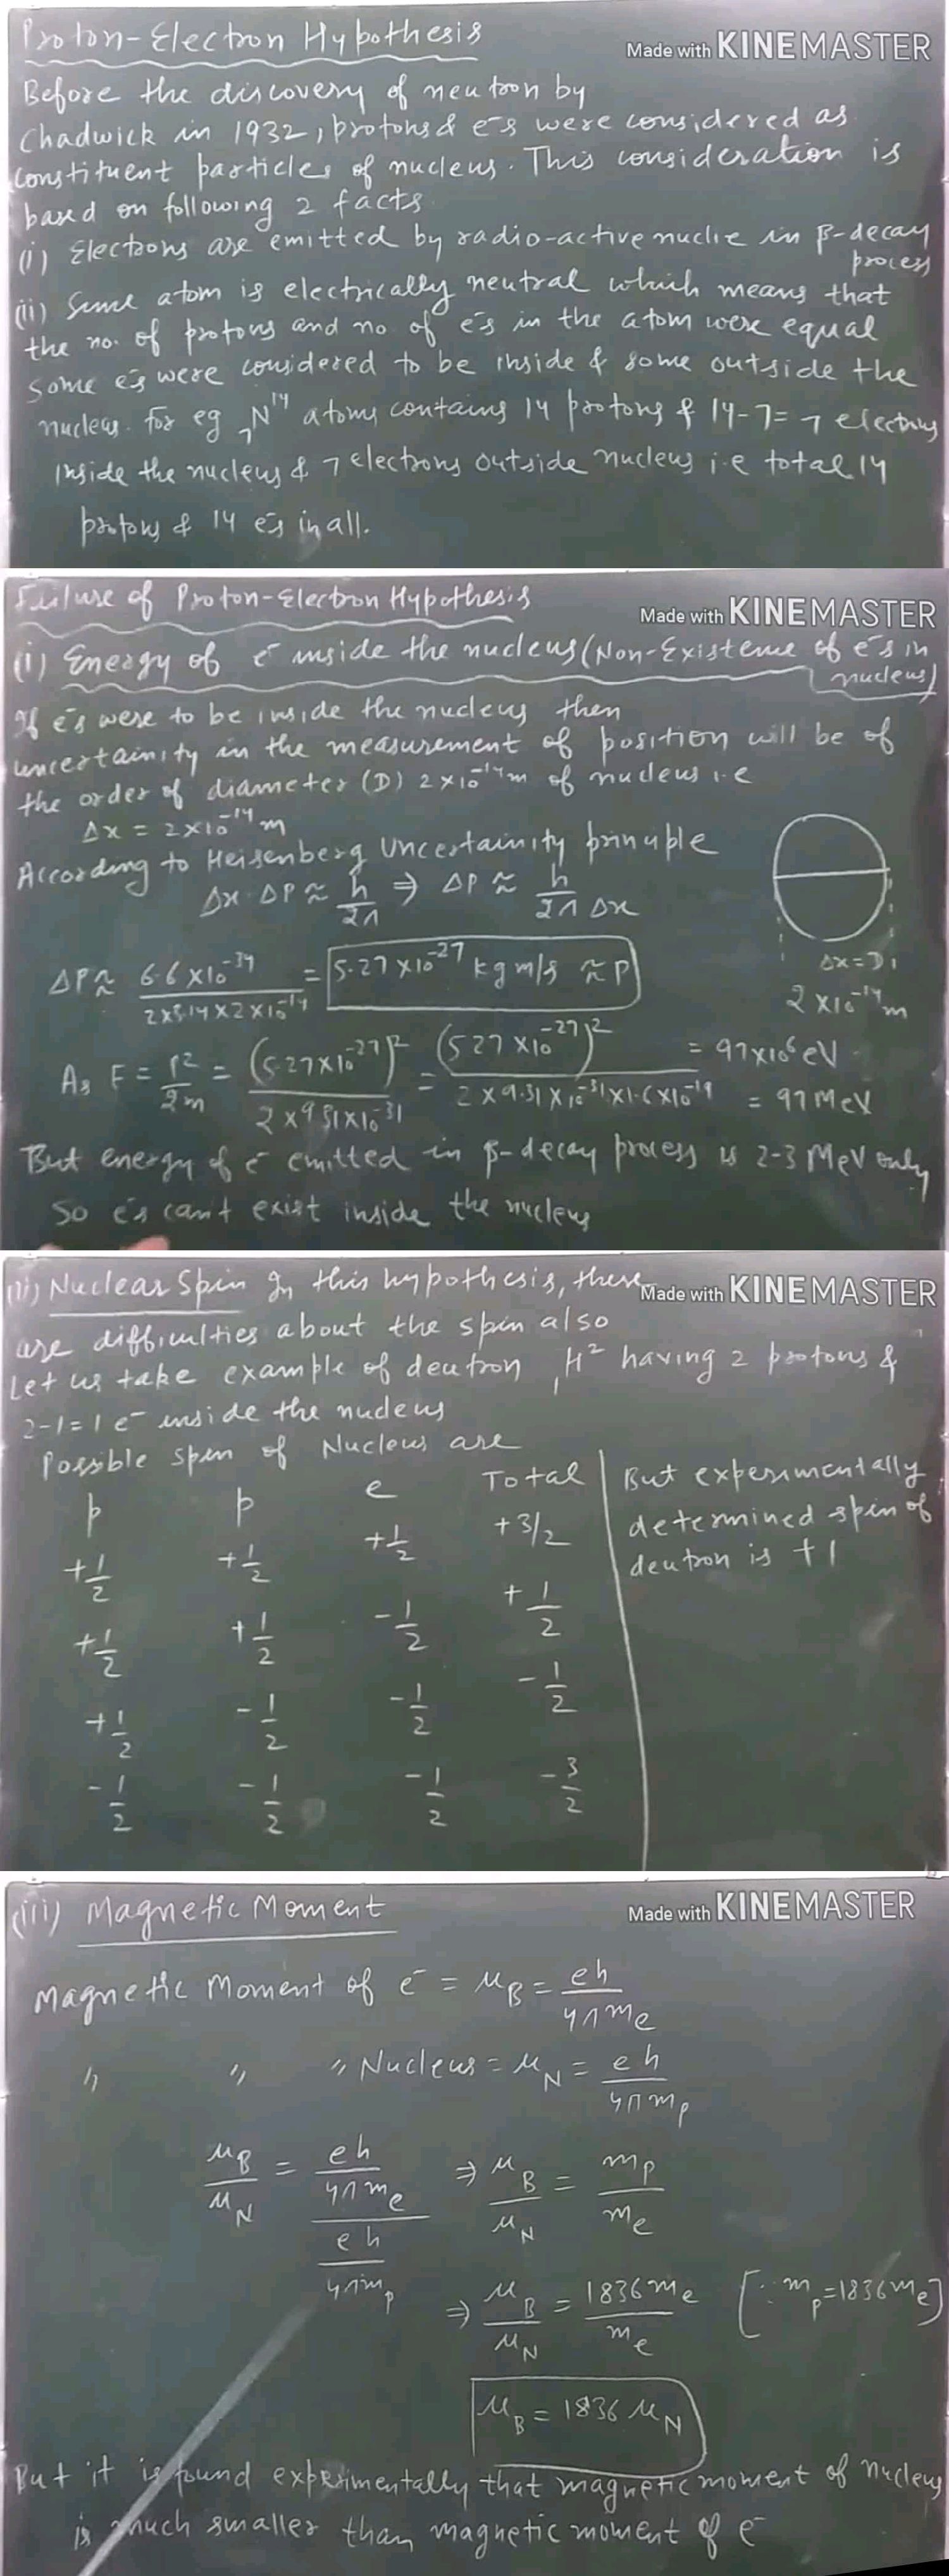 Proton-Electron Hypothesis
Made with KINEMASTER
Before the discovery of neutron by
Chadwick in 1932, protons & e⁻s were considered as
constituent particles of nucleus. This consideration is
based on following 2 facts
(i) Electrons are emitted by radio-active nuclie in β-decay
process
(ii) Same atom is electrically neutral which means that
the no. of protons and no. of e⁻s in the atom were equal
some e⁻s were considered to be inside & some outside the
nucleus. for eg ₇N¹⁴ atoms contains 14 protons & 14-7=7 electrons
inside the nucleus & 7 electrons outside nucleus i.e total 14
protons & 14 e⁻s in all.
Failure of Proton-Electron Hypothesis
Made with KINEMASTER
(i) Energy of e⁻ inside the nucleus (Non-Existence of e⁻s in
nucleus)
If e⁻s were to be inside the nucleus then
uncertainity in the measurement of position will be of
the order of diameter (D) 2×10⁻¹⁴m of nucleus i.e
Δx = 2×10⁻¹⁴m
According to Heisenberg Uncertainity principle
Δx·ΔP ≈ h/2π ⇒ ΔP ≈ h/2πΔx
Δx=D=
2×10⁻¹⁴m
ΔP ≈ 6.6×10⁻³⁴/2×3.14×2×10⁻¹⁴ = 5.27×10⁻²⁷ kg m/s ≈ P
As E = P²/2m = (5.27×10⁻²⁷)²/2×9.31×10⁻³¹ = (5.27×10⁻²⁷)²/2×9.31×10⁻³¹×1.6×10⁻¹⁹ = 97×10⁶eV
= 97MeV
But energy of e⁻ emitted in β-decay process is 2-3 MeV only
So e⁻s can't exist inside the nucleus
(ii) Nuclear Spin In this hypothesis, there
Made with KINEMASTER
are difficulties about the spin also
Let us take example of deutron ₁H² having 2 protons &
2-1=1 e⁻ inside the nucleus
Possible spin of Nucleus are
p p e Total
+1/2 +1/2 +1/2 +3/2
+1/2 +1/2 -1/2 +1/2
+1/2 -1/2 -1/2 -1/2
-1/2 -1/2 -1/2 -3/2
But experimentally
determined spin of
deutron is +1
(iii) Magnetic Moment
Made with KINEMASTER
Magnetic Moment of e⁻ = μ_B = eh/4πm_e
〃 〃 〃 Nucleus = μ_N = eh/4πm_p
μ_B/μ_N = (eh/4πm_e)/(eh/4πm_p) ⇒ μ_B/μ_N = m_p/m_e
⇒ μ_B/μ_N = 1836m_e/m_e [∵ m_p=1836m_e]
μ_B = 1836 μ_N
But it is found experimentally that magnetic moment of nucleus
is much smaller than magnetic moment of e⁻